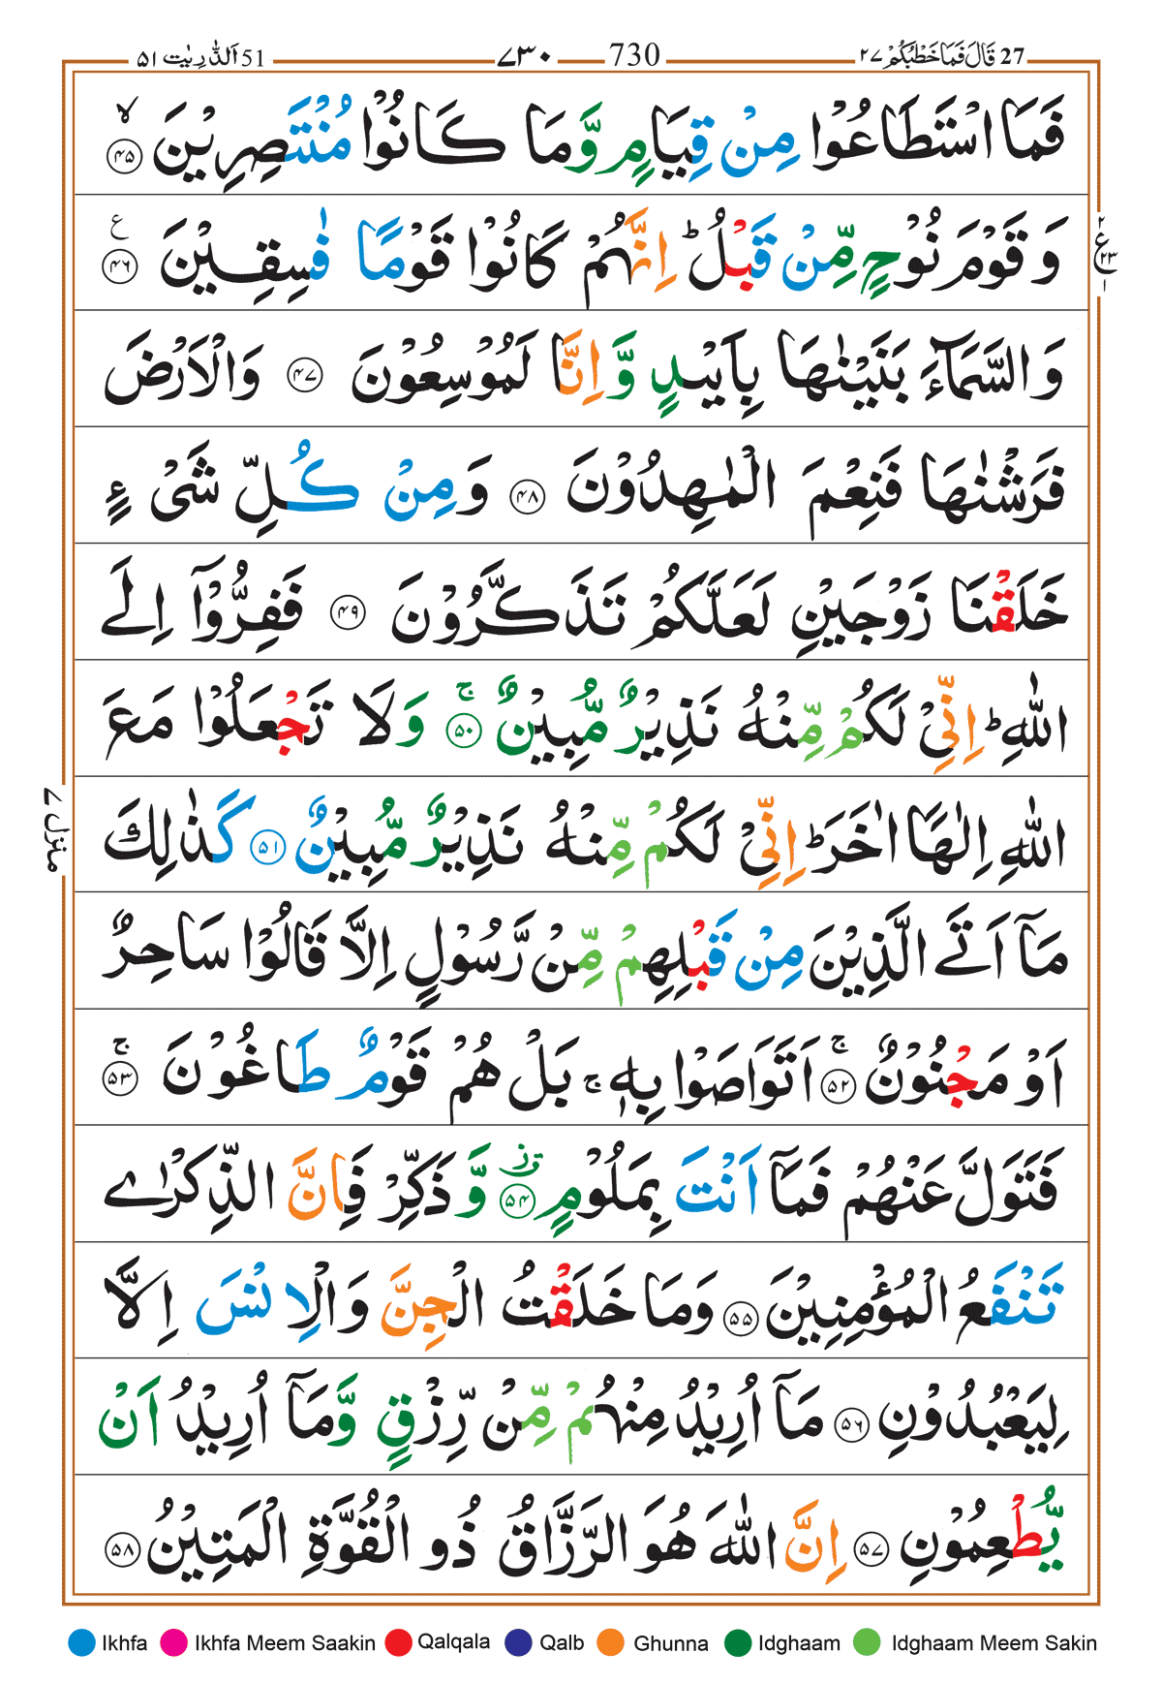 27 قَالَ فَمَا خَطْبُكُمْ ٢٧ 730 ٧٣٠ 51 اَلذّٰرِيٰت ٥١
فَمَا اسْتَطَاعُوْا مِنْ قِيَامٍ وَّمَا كَانُوْا مُنْتَصِرِيْنَ ۙ ﴿۴۵﴾
وَ قَوْمَ نُوْحٍ مِّنْ قَبْلُ ؕ اِنَّهُمْ كَانُوْا قَوْمًا فٰسِقِيْنَ ﴿۴۶﴾ ع
وَ السَّمَآءَ بَنَيْنٰهَا بِاَيْىدٍ وَّ اِنَّا لَمُوْسِعُوْنَ ﴿۴۷﴾ وَالْاَرْضَ
فَرَشْنٰهَا فَنِعْمَ الْمٰهِدُوْنَ ﴿۴۸﴾ وَ مِنْ كُلِّ شَىْءٍ
خَلَقْنَا زَوْجَيْنِ لَعَلَّكُمْ تَذَكَّرُوْنَ ﴿۴۹﴾ فَفِرُّوْۤا اِلَى
اللّٰهِ ؕ اِنِّىْ لَكُمْ مِّنْهُ نَذِيْرٌ مُّبِيْنٌ ۚ ﴿۵۰﴾ وَلَا تَجْعَلُوْا مَعَ
اللّٰهِ اِلٰهًا اٰخَرَ ؕ اِنِّىْ لَكُمْ مِّنْهُ نَذِيْرٌ مُّبِيْنٌ ﴿۵۱﴾ كَذٰلِكَ
مَاۤ اَتَى الَّذِيْنَ مِنْ قَبْلِهِمْ مِّنْ رَّسُوْلٍ اِلَّا قَالُوْا سَاحِرٌ
اَوْ مَجْنُوْنٌ ۚ ﴿۵۲﴾ اَتَوَاصَوْا بِهٖ ۚ بَلْ هُمْ قَوْمٌ طَاغُوْنَ ۚ ﴿۵۳﴾
فَتَوَلَّ عَنْهُمْ فَمَاۤ اَنْتَ بِمَلُوْمٍ ﴿۵۴﴾ وَّ ذَكِّرْ فَاِنَّ الذِّكْرٰى
تَنْفَعُ الْمُؤْمِنِيْنَ ﴿۵۵﴾ وَمَا خَلَقْتُ الْجِنَّ وَالْاِنْسَ اِلَّا
لِيَعْبُدُوْنِ ﴿۵۶﴾ مَاۤ اُرِيْدُ مِنْهُمْ مِّنْ رِّزْقٍ وَّمَاۤ اُرِيْدُ اَنْ
يُّطْعِمُوْنِ ﴿۵۷﴾ اِنَّ اللّٰهَ هُوَ الرَّزَّاقُ ذُو الْقُوَّةِ الْمَتِيْنُ ﴿۵۸﴾
منزل ٧
Ikhfa Ikhfa Meem Saakin Qalqala Qalb Ghunna Idghaam Idghaam Meem Sakin